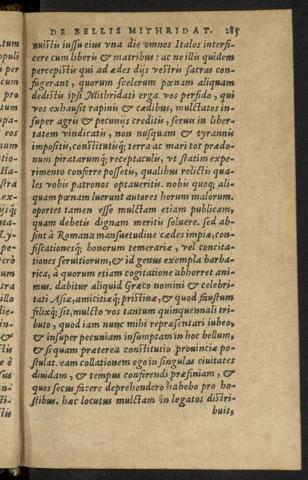 DE BELLIS MITHRIDAT. 285
nuistis iussu eius vna die omnes Italos interfi-
cere cum liberis & matribus: ac ne illis quidem
percepistis qui ad ædes dijs vestris sacras con-
fugerant, quorum scelerum pœnam aliquam
dedistis ipsi Mithridati erga vos perfido, qui
vos exhausit rapinis & cædibus, mulctatos in-
super agris & pecunijs creditis, seruis in liber-
tatem vindicatis, non nusquam & tyrannis
impositis, constitutisq; terra ac mari tot prædo-
num piratarumq; receptaculis, vt statim expe-
rimento conferre possetis, qualibus relictis qua-
les vobis patronos optaueritis. nobis quoq; ali-
quam pœnam luerunt autores horum malorum.
oportet tamen esse mulctam etiam publicam,
quam debetis dignam meritis soluere. sed ab-
sint à Romana mansuetudine cædes impiæ, con-
fiscationesq; bonorum temerariæ, vel concita-
tiones seruitiorum, & id genus exempla barba-
rica, à quorum etiam cogitatione abhorret ani-
mus. dabitur aliquid Græco nomini & celebri-
tati Asiæ, amicitiæq; pristinæ, & quod faustum
felixq; sit, mulcto vos tantum quinquennali tri-
buto, quod iam nunc mihi repræsentari iubeo,
& insuper pecuniam insumptam in hoc bellum,
& siquam præterea constitutio prouinciæ po-
stulat. eam collationem ego in singulas ciuitates
diuidam, & tempus conferendi præfiniam, &
quos secus facere deprehendero habebo pro ho-
stibus. hæc locutus mulctam in legatos distri-
buit,